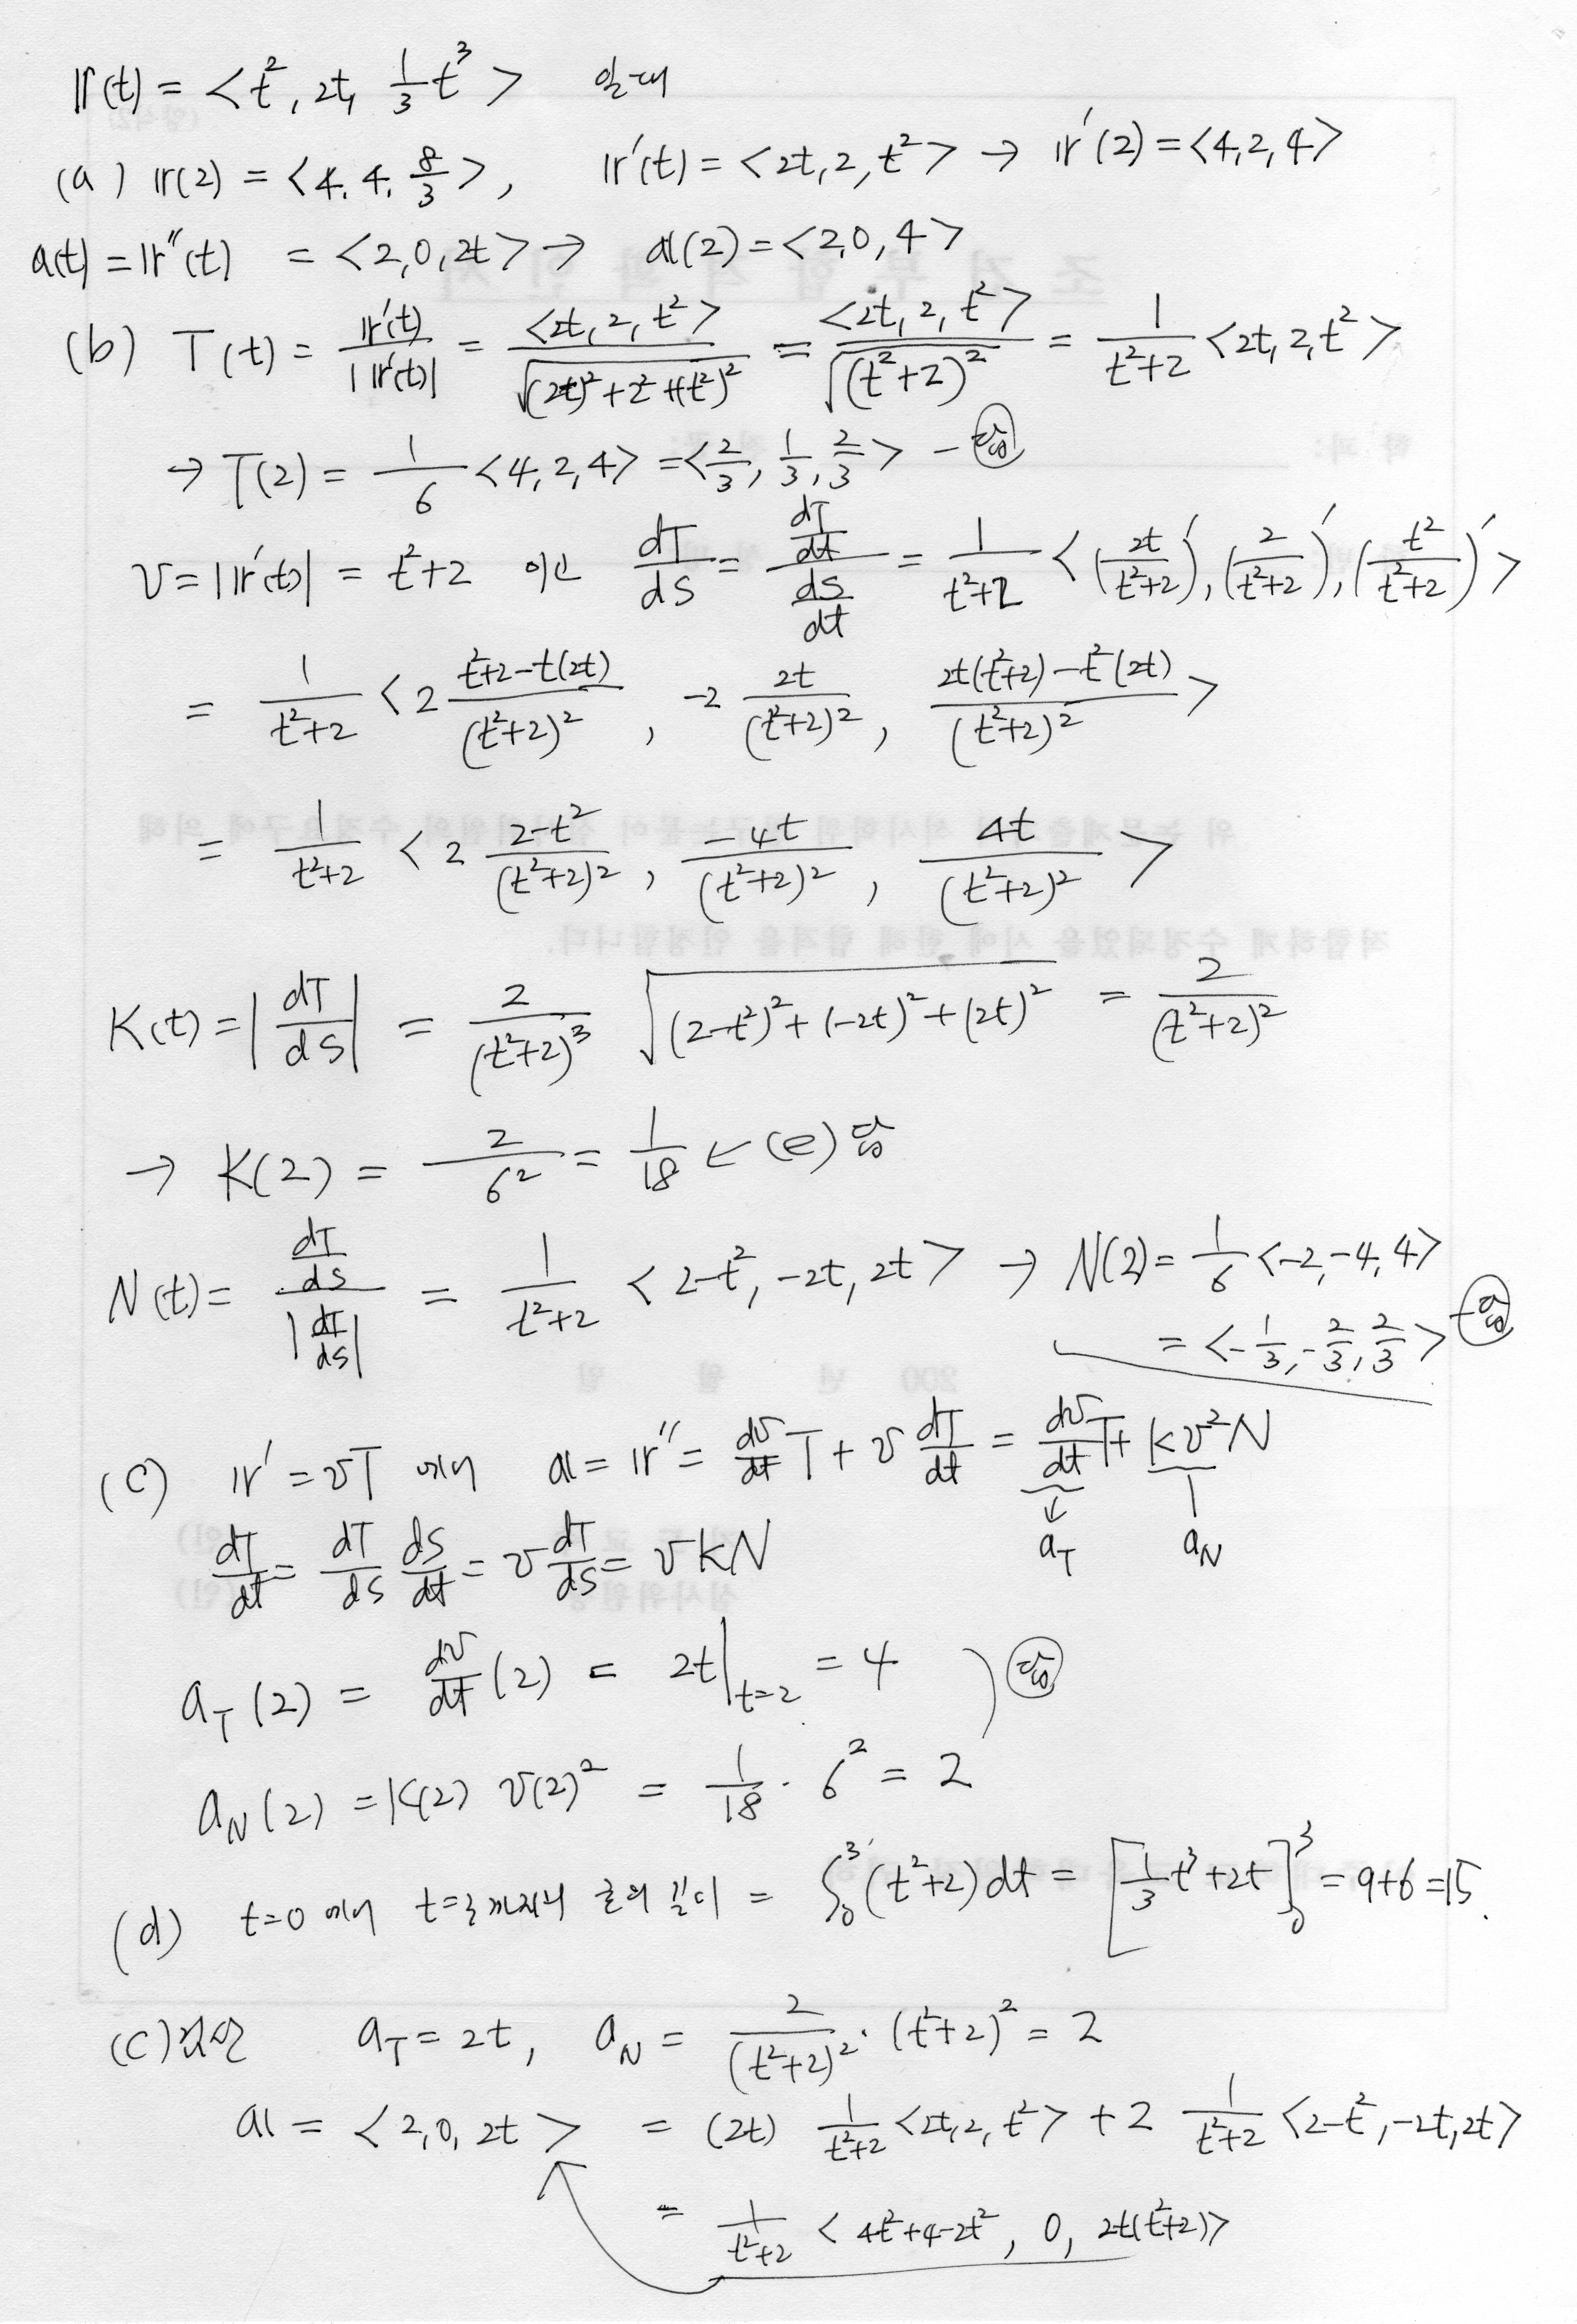 r(t) = <t², 2t, 1/3 t³> 일때
(a) r(2) = <4, 4, 8/3>, r'(t) = <2t, 2, t²> → r'(2) = <4, 2, 4>
a(t) = r''(t) = <2, 0, 2t> → a(2) = <2, 0, 4>
(b) T(t) = r'(t)/|r'(t)| = <2t, 2, t²>/√((2t)²+2²+(t²)²) = <2t, 2, t²>/√((t²+2)²) = 1/(t²+2) <2t, 2, t²>
→ T(2) = 1/6 <4, 2, 4> = <2/3, 1/3, 2/3> - 답
v = |r'(t)| = t²+2 이고 dT/ds = (dT/dt)/(ds/dt) = 1/(t²+2) <(2t/(t²+2))', (2/(t²+2))', (t²/(t²+2))'>
= 1/(t²+2) <2 (t²+2-t(2t))/(t²+2)², -2 2t/(t²+2)², (2t(t²+2)-t²(2t))/(t²+2)²>
= 1/(t²+2) <2 (2-t²)/(t²+2)², -4t/(t²+2)², 4t/(t²+2)²>
K(t) = |dT/ds| = 2/(t²+2)³ √((2-t²)²+(-2t)²+(2t)²) = 2/(t²+2)²
→ K(2) = 2/6² = 1/18 ← (e) 답
N(t) = (dT/ds)/|dT/ds| = 1/(t²+2) <2-t², -2t, 2t> → N(2) = 1/6 <-2, -4, 4>
= <-1/3, -2/3, 2/3> - 답
(c) r' = vT 에서 a = r'' = dv/dt T + v dT/dt = dv/dt T + kv²N
↓ a_T a_N
dT/dt = dT/ds ds/dt = v dT/ds = vkN
a_T(2) = dv/dt (2) = 2t|t=2 = 4 ) 답
a_N(2) = K(2) v(2)² = 1/18 · 6² = 2
(d) t=0 에서 t=3까지의 곡의 길이 = ∫₀³ (t²+2) dt = [1/3 t³+2t]₀³ = 9+6 = 15.
(c) a_T = 2t, a_N = 2/(t²+2)² · (t²+2)² = 2
a = <2, 0, 2t> = (2t) 1/(t²+2) <2t, 2, t²> + 2 1/(t²+2) <2-t², -2t, 2t>
= 1/(t²+2) <4t²+4-2t², 0, 2t(t²+2)>